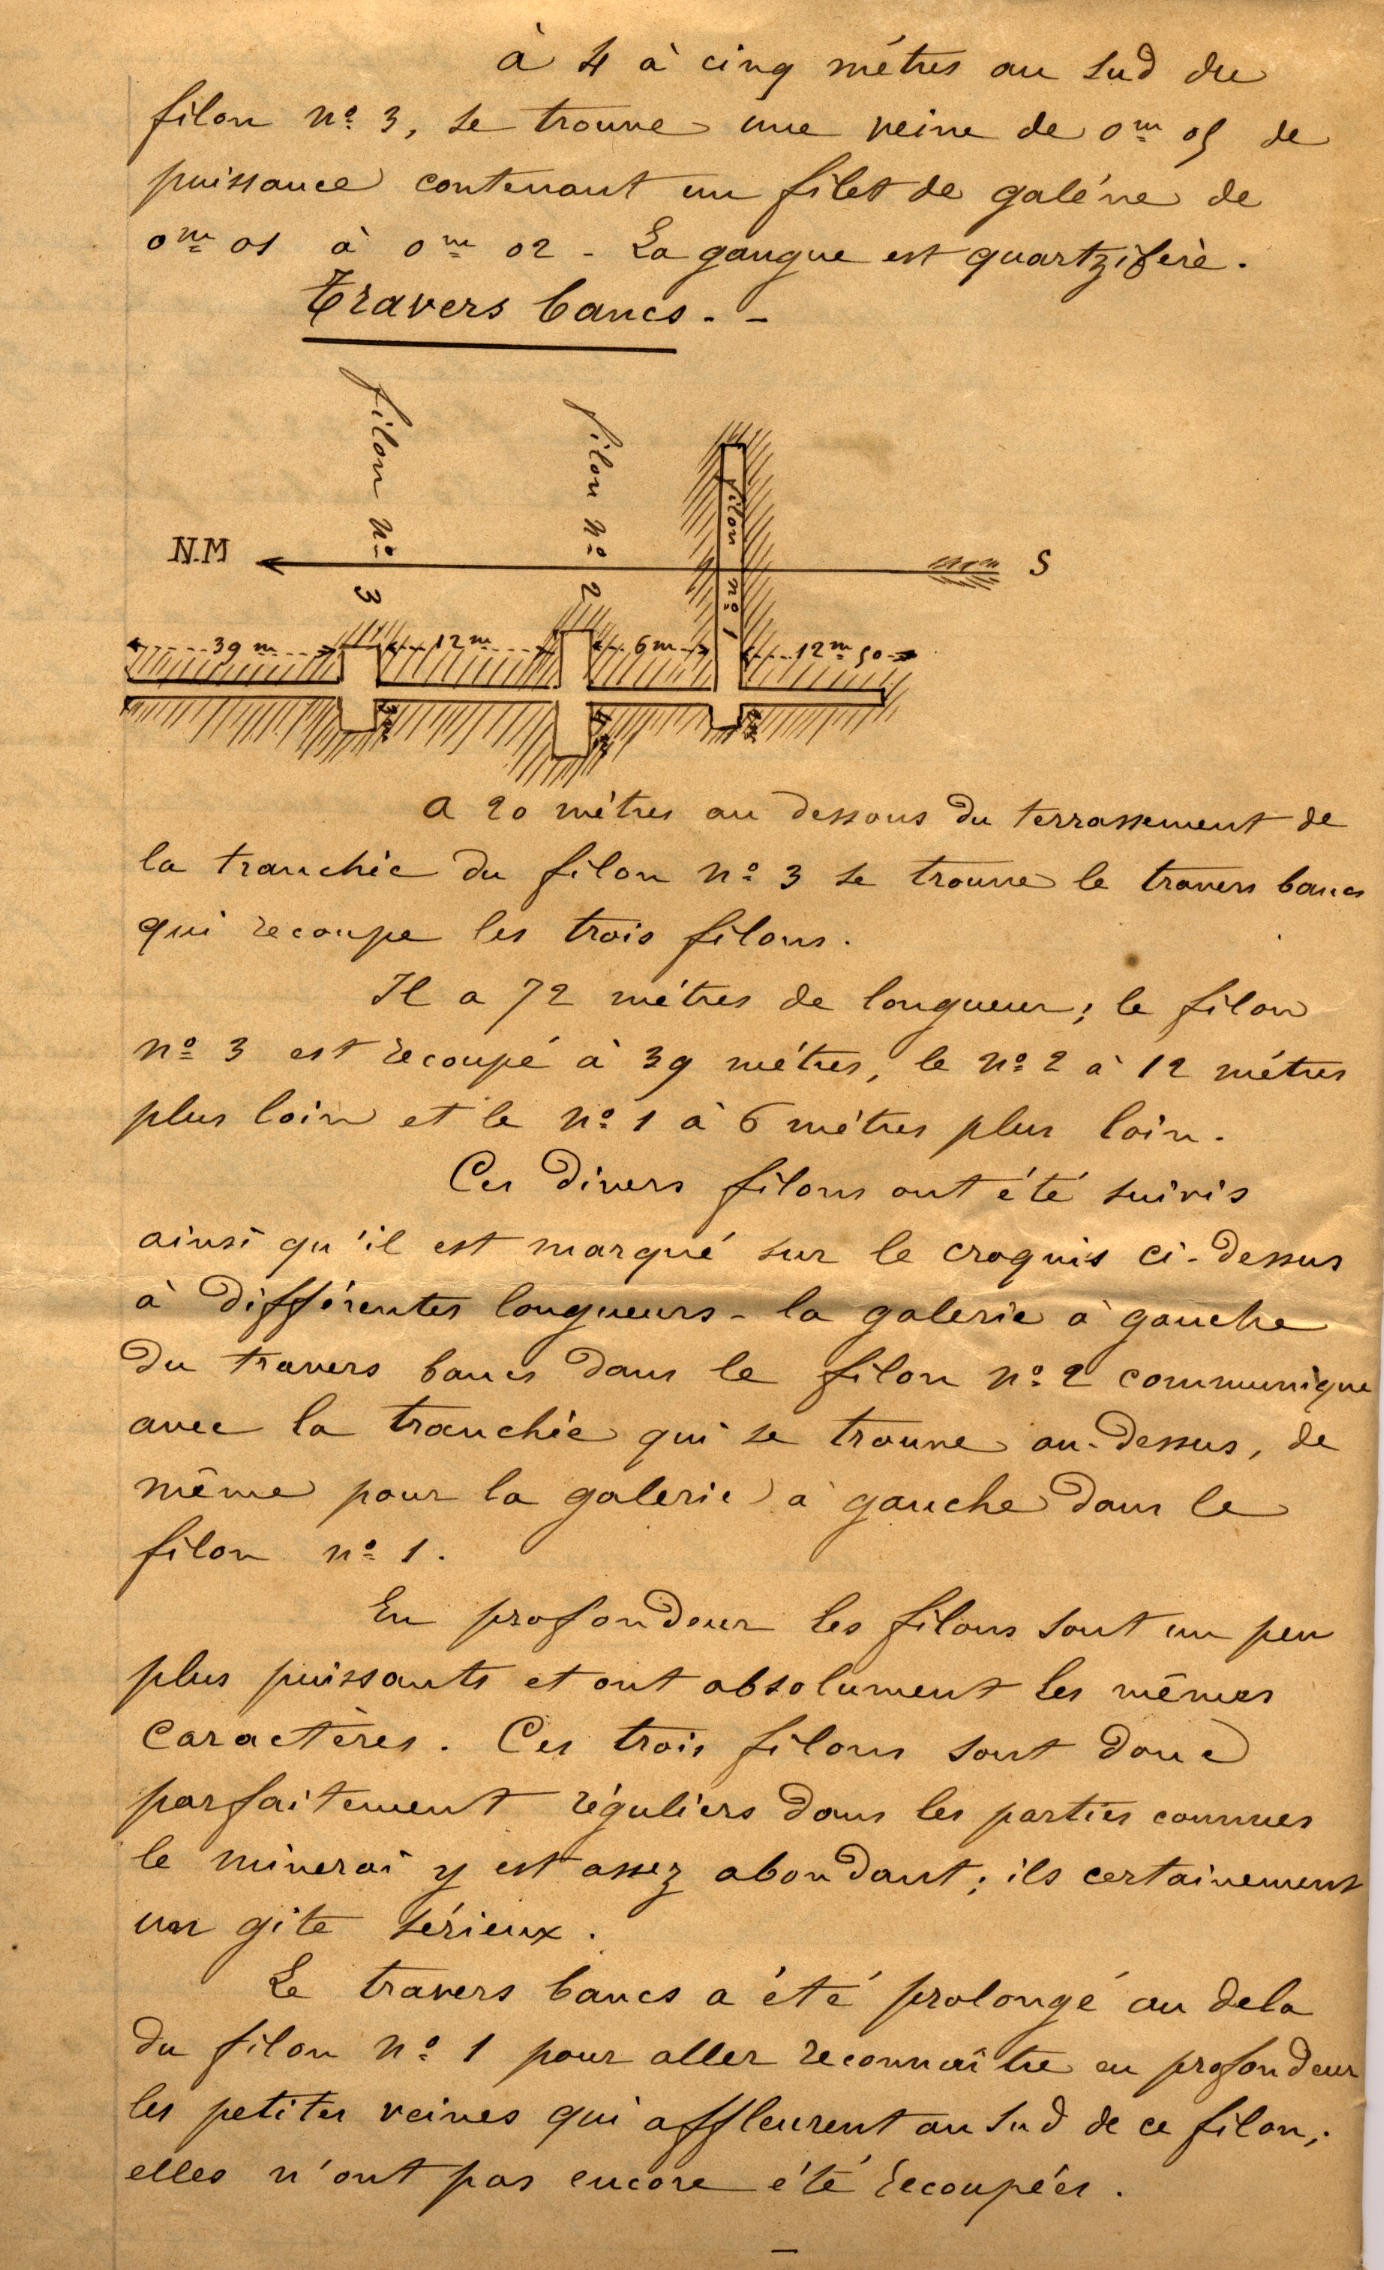 à 4 à cinq mètres au sud du
filon nº 3, se trouve une veine de 0m 05 de
puissance contenant un filet de galéne de
0m 01 à 0m 02 - La gangue est quartzifère.
Travers bancs. -
filon nº 3
filon nº 2
filon nº 1
N.M
S
39 m
12 m
6 m
12 m 50
3m
4m
A 20 mètres au dessous du terrassement de
la tranchée du filon nº 3 se trouve le travers bancs
qui recoupe les trois filons.
Il a 72 mètres de longueur; le filon
nº 3 est recoupé à 39 mètres, le nº 2 à 12 mètres
plus loin et le nº 1 à 6 mètres plus loin.
Ces divers filons ont été suivis
ainsi qu'il est marqué sur le croquis ci-dessus
à différentes longueurs - la galerie à gauche
du travers bancs dans le filon nº 2 communique
avec la tranchée qui se trouve au-dessus, de
même pour la galerie à gauche dans le
filon nº 1.
En profondeur les filons sont un peu
plus puissants et ont absolument les mêmes
caractères. Ces trois filons sont donc
parfaitement réguliers dans les parties connues
le minerai y est assez abondant; ils certainement
un gite sérieux.
Le travers bancs a été prolongé au dela
du filon nº 1 pour aller reconnaître en profondeur
les petites veines qui affleurent au sud de ce filon;
elles n'ont pas encore été recoupées.